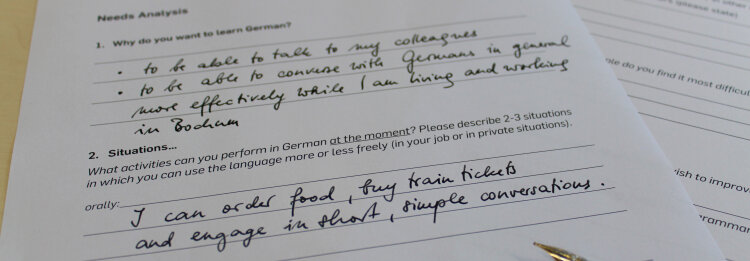 Needs Analysis
1. Why do you want to learn German?
• to be able to talk to my colleagues
• to be able to converse with Germans in general
more effectively while I am living and working
in Bochum
2. Situations...
What activities can you perform in German at the moment? Please describe 2-3 situations
in which you can use the language more or less freely (in your job or in private situations).
orally: I can order food, buy train tickets
and engage in short, simple conversations.
other
(please state)
do you find it most difficul
ish to improv
rammar